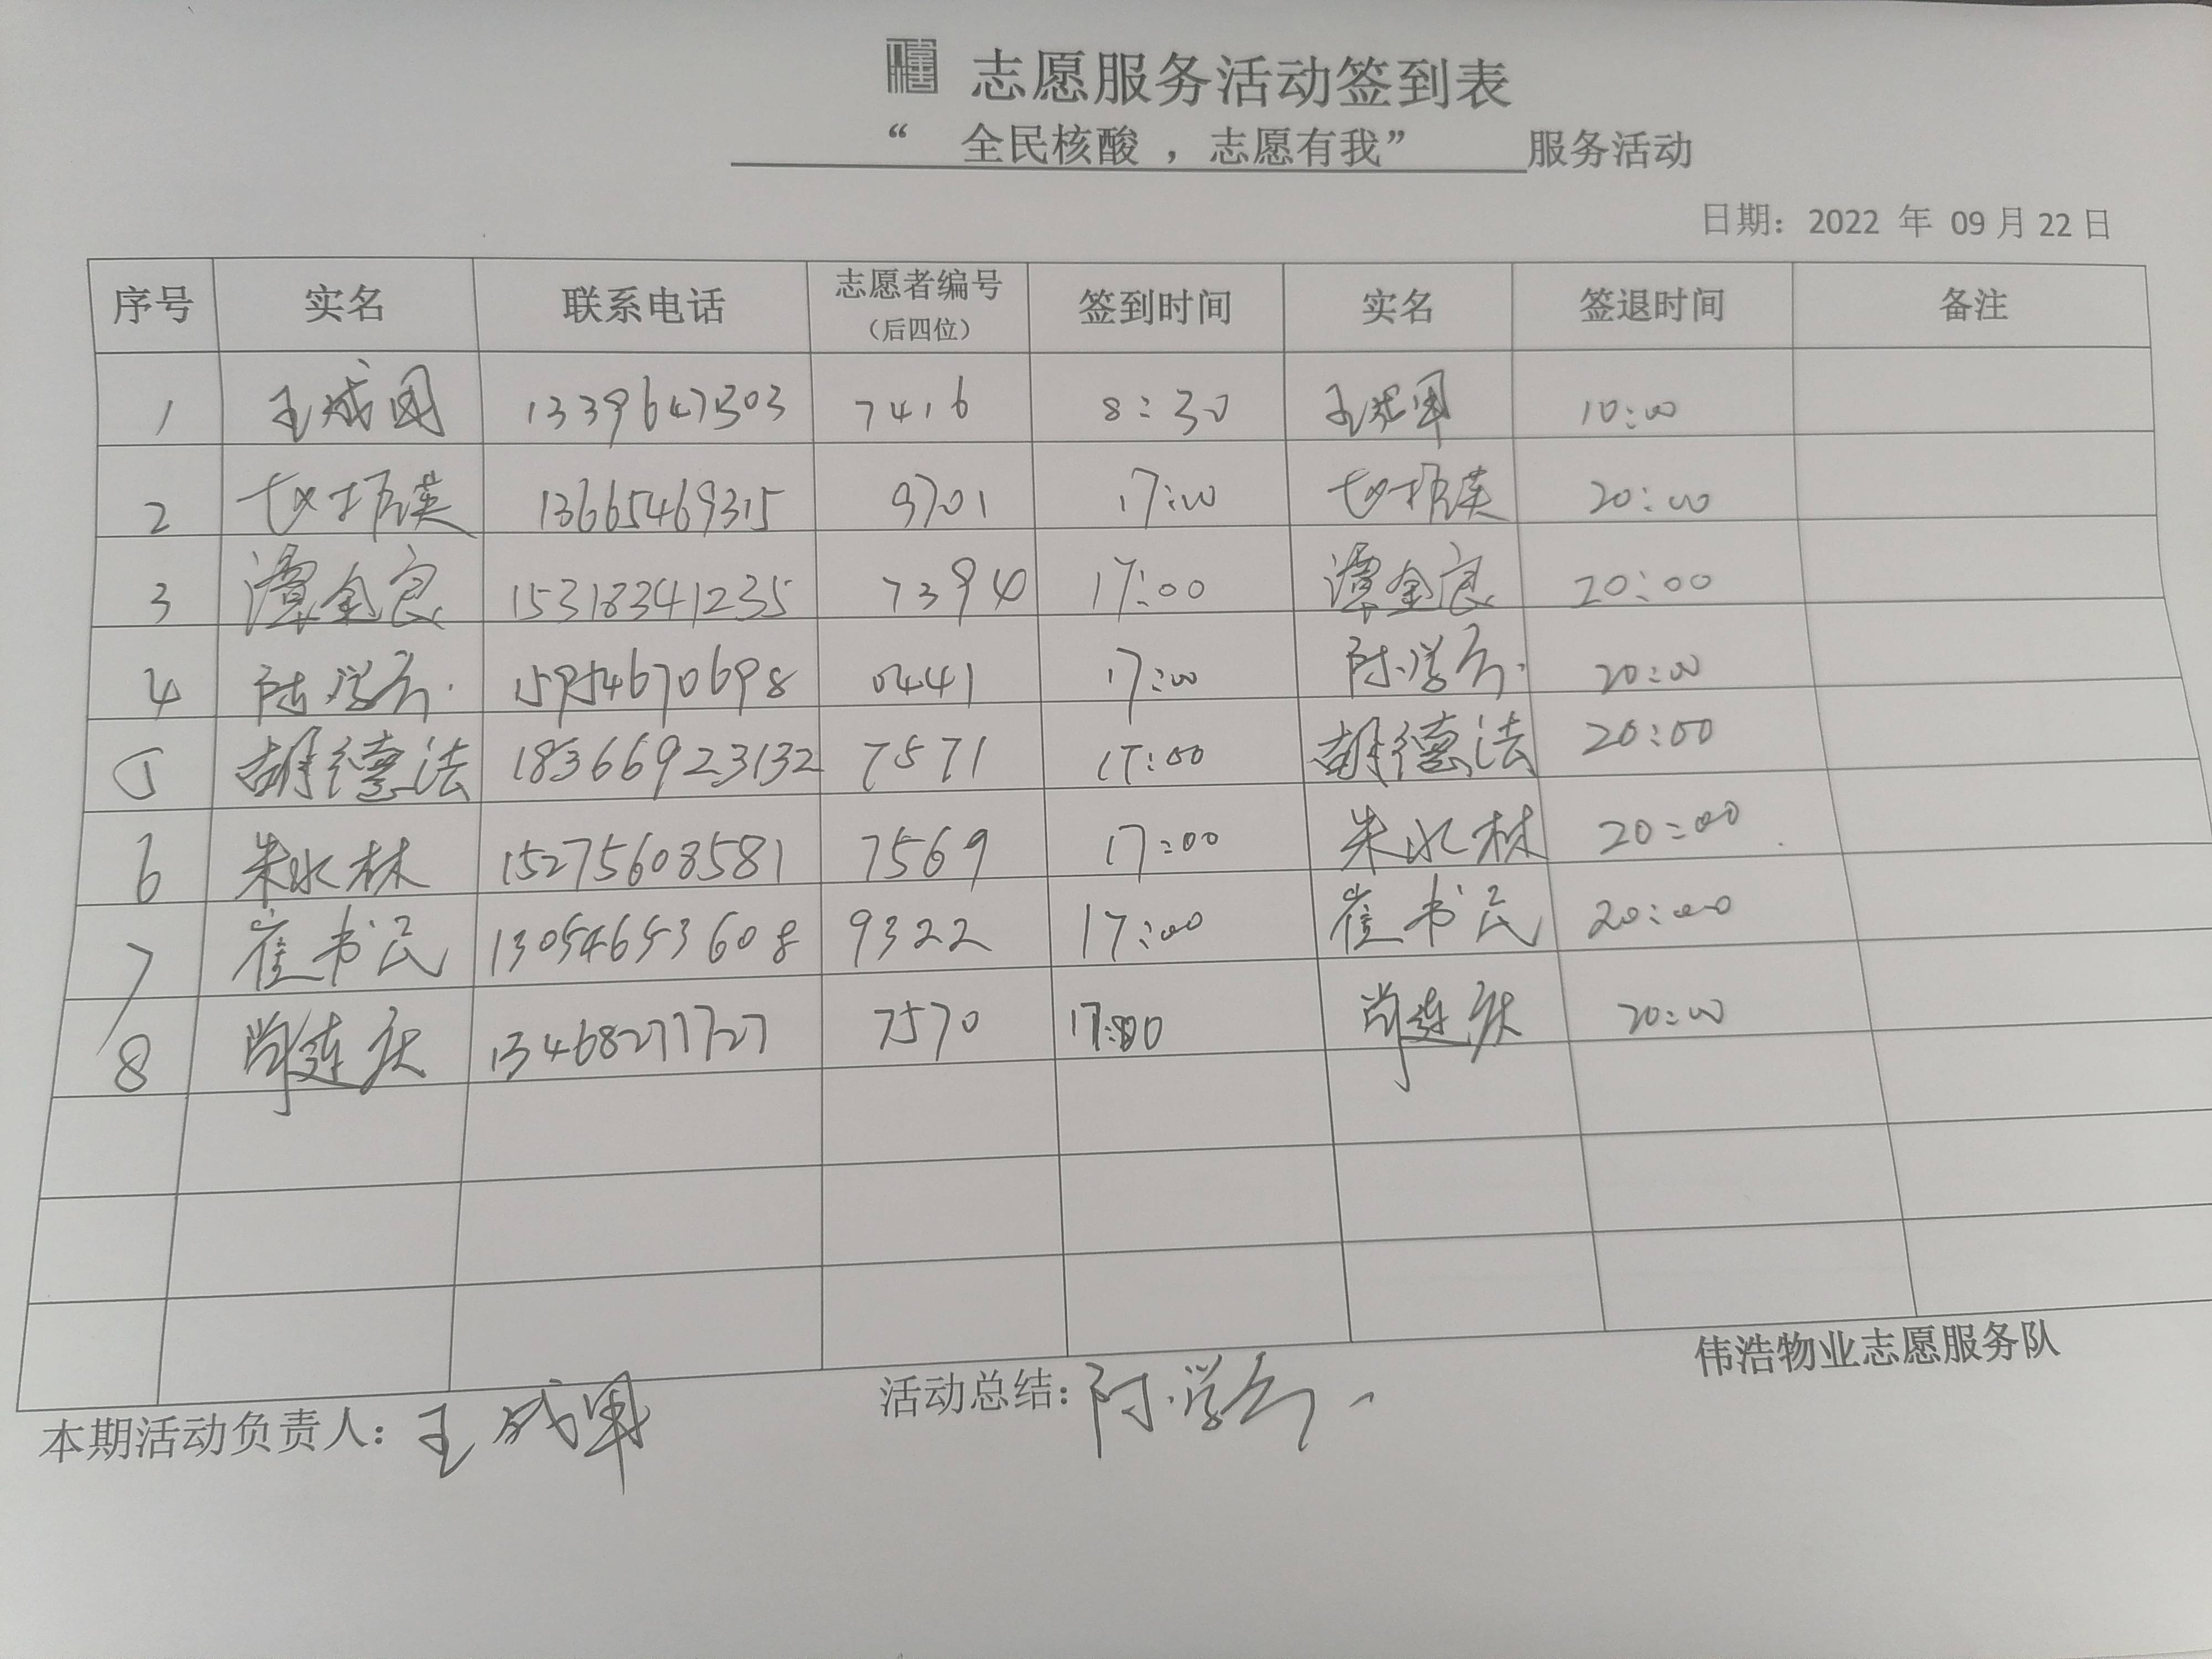 志愿服务活动签到表
“ 全民核酸 ，志愿有我” 服务活动
日期：2022 年 09 月 22 日
序号 实名 联系电话 志愿者编号（后四位） 签到时间 实名 签退时间 备注
1 王成军 13396471303 7416 8:30 王成军 10:00
2 13665469315 9701 17:00 20:00
3 谭金良 15318341235 7394 17:00 谭金良 20:00
4 陈学云 15954670698 0441 17:00 陈学云 20:00
5 胡德法 18366923132 7571 17:00 胡德法 20:00
6 朱水林 15275608581 7569 17:00 朱水林 20:00
7 崔书民 13054653608 9322 17:00 崔书民 20:00
8 尚连庆 13468277727 7570 17:00 尚连庆 20:00
伟浩物业志愿服务队
本期活动负责人：王成军 活动总结：陈学云